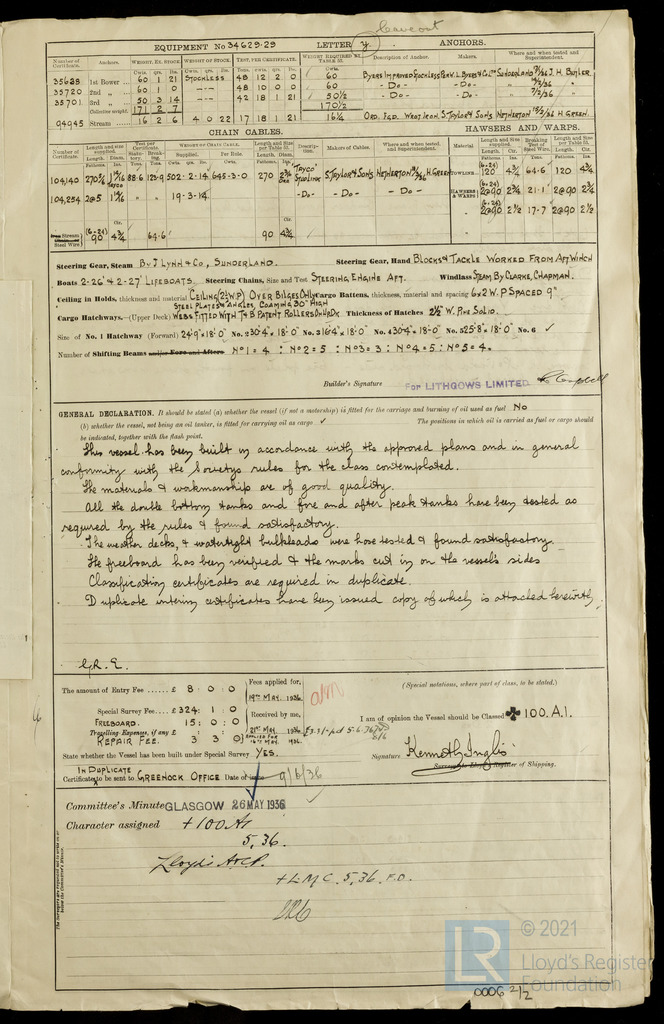 Caveat
EQUIPMENT No 34629.29 LETTER y. ANCHORS.
Number of Certificate. Anchors. WEIGHT, EX. STOCK. WEIGHT OF STOCK. TEST, PER CERTIFICATE. WEIGHT REQUIRED BY TABLE 53. Description of Anchor. Makers. Where and when tested and Superintendent.
35628 1st Bower 60 1 21 STOCKLESS 48 12 2 0 60 BYERS IMPROVED STOCKLESS SUNDERLAND J. H. BUTLER.
35720 2nd " 60 1 0 - - 48 10 0 0 60 - Do - - Do - "
35701 3rd " 50 3 14 - - 42 18 1 21 50½ - Do - - Do - "
Collective weight 171 2 7 170½
94945 Stream 16 2 6 4 0 22 17 18 1 21 16¼ ORD. FGD. WGT IRON. S. TAYLOR & SONS NETHERTON H. GREEN.
CHAIN CABLES. HAWSERS AND WARPS.
Number of Certificate. Length and size supplied. Test per Certificate. WEIGHT OF CHAIN CABLE. Length and Size per Table 53. Description. Makers of Cables. Where and when tested, and Superintendent. Material Length and Size supplied. Breaking Test of Steel Wire. Length and Size per Table 53.
104,140 88.6 502-2-14 645-3-0 270 "TAYCO" STUDLINK S. TAYLOR & SONS NETHERTON H. GREEN TOWLINE 120 4¾ 64.6 120 4¾
104,254 19-3-14 - Do - - Do - - Do - HAWSERS & WARPS 2@90 2¾ 21.1 2@90 2¾
2@90 2½ 17.7 2@90 2½
Stream Steel Wire 90 4¾ 64.6 90 4¾
Steering Gear, Steam BY J LYNN & CO, SUNDERLAND. Steering Gear, Hand BLOCKS & TACKLE WORKED FROM AFT WINCH
Boats 2-26' & 2-27' LIFEBOATS. Steering Chains, Size and Test STEERING ENGINE AFT. Windlass STEAM BY CLARKE, CHAPMAN.
Ceiling in Holds, thickness and material CEILING (2½ W.P) OVER BILGES ONLY Cargo Battens, thickness, material and spacing 6x2 W.P SPACED 9"
STEEL PLATES & ANGLES, COAMING 30" HIGH
Cargo Hatchways.—(Upper Deck) WEBS FITTED WITH T & B PATENT ROLLERS ON UP. DK. Thickness of Hatches 2½" W. PINE SOLID.
Size of No. 1 Hatchway (Forward) 24'9"x18'0" No. 2 30'4"x18'0" No. 3 16'4"x18'0" No. 4 30'4"x18'0" No. 5 25'8"x18'0" No. 6 ✓
Number of Shifting Beams and/or Fore and Afters No 1 = 4 : No 2 = 5 : No 3 = 3 : No 4 = 5 : No 5 = 4.
Builder's Signature FOR LITHGOWS LIMITED
GENERAL DECLARATION. It should be stated (a) whether the vessel (if not a motorship) is fitted for the carriage and burning of oil used as fuel No
(b) whether the vessel, not being an oil tanker, is fitted for carrying oil as cargo ✓ The positions in which oil is carried as fuel or cargo should
be indicated, together with the flash point.
This vessel has been built in accordance with the approved plans and in general
conformity with the Society's rules for the class contemplated.
The materials & workmanship are of good quality.
All the double bottom tanks and fore and after peak tanks have been tested as
required by the rules & found satisfactory.
The weather decks, & watertight bulkheads were hose tested & found satisfactory.
The freeboard has been verified & the marks cut in on the vessel's sides
Classification certificates are required in duplicate.
Duplicate interim certificates have been issued copy of which is attached herewith.
The amount of Entry Fee ...... £ 8 : 0 : 0 Fees applied for, (Special notations, where part of class, to be stated.)
19TH MAY, 1936
Special Survey Fee .... £324 : 1 : 0 Received by me, I am of opinion the Vessel should be Classed ✠ 100.A.1.
FREEBOARD. 15 : 0 : 0
Travelling Expenses, if any £ : : 21ST MAY, 1936
REPAIR FEE. 3 3 0 Signature Kenneth Inglis
State whether the Vessel has been built under Special Survey YES. Surveyor to Lloyd's Register of Shipping.
IN DUPLICATE
Certificate to be sent to GREENOCK OFFICE Date of issue 9/6/36
Committee's Minute GLASGOW 26 MAY 1936
Character assigned +100 A1
5,36.
Lloyd's A&CP.
+LMC. 5,36. F.D.
The Surveyors are requested not to write on or below the Committee's Minute.
LR © 2021
Lloyd's Register
Foundation
0006 2/2